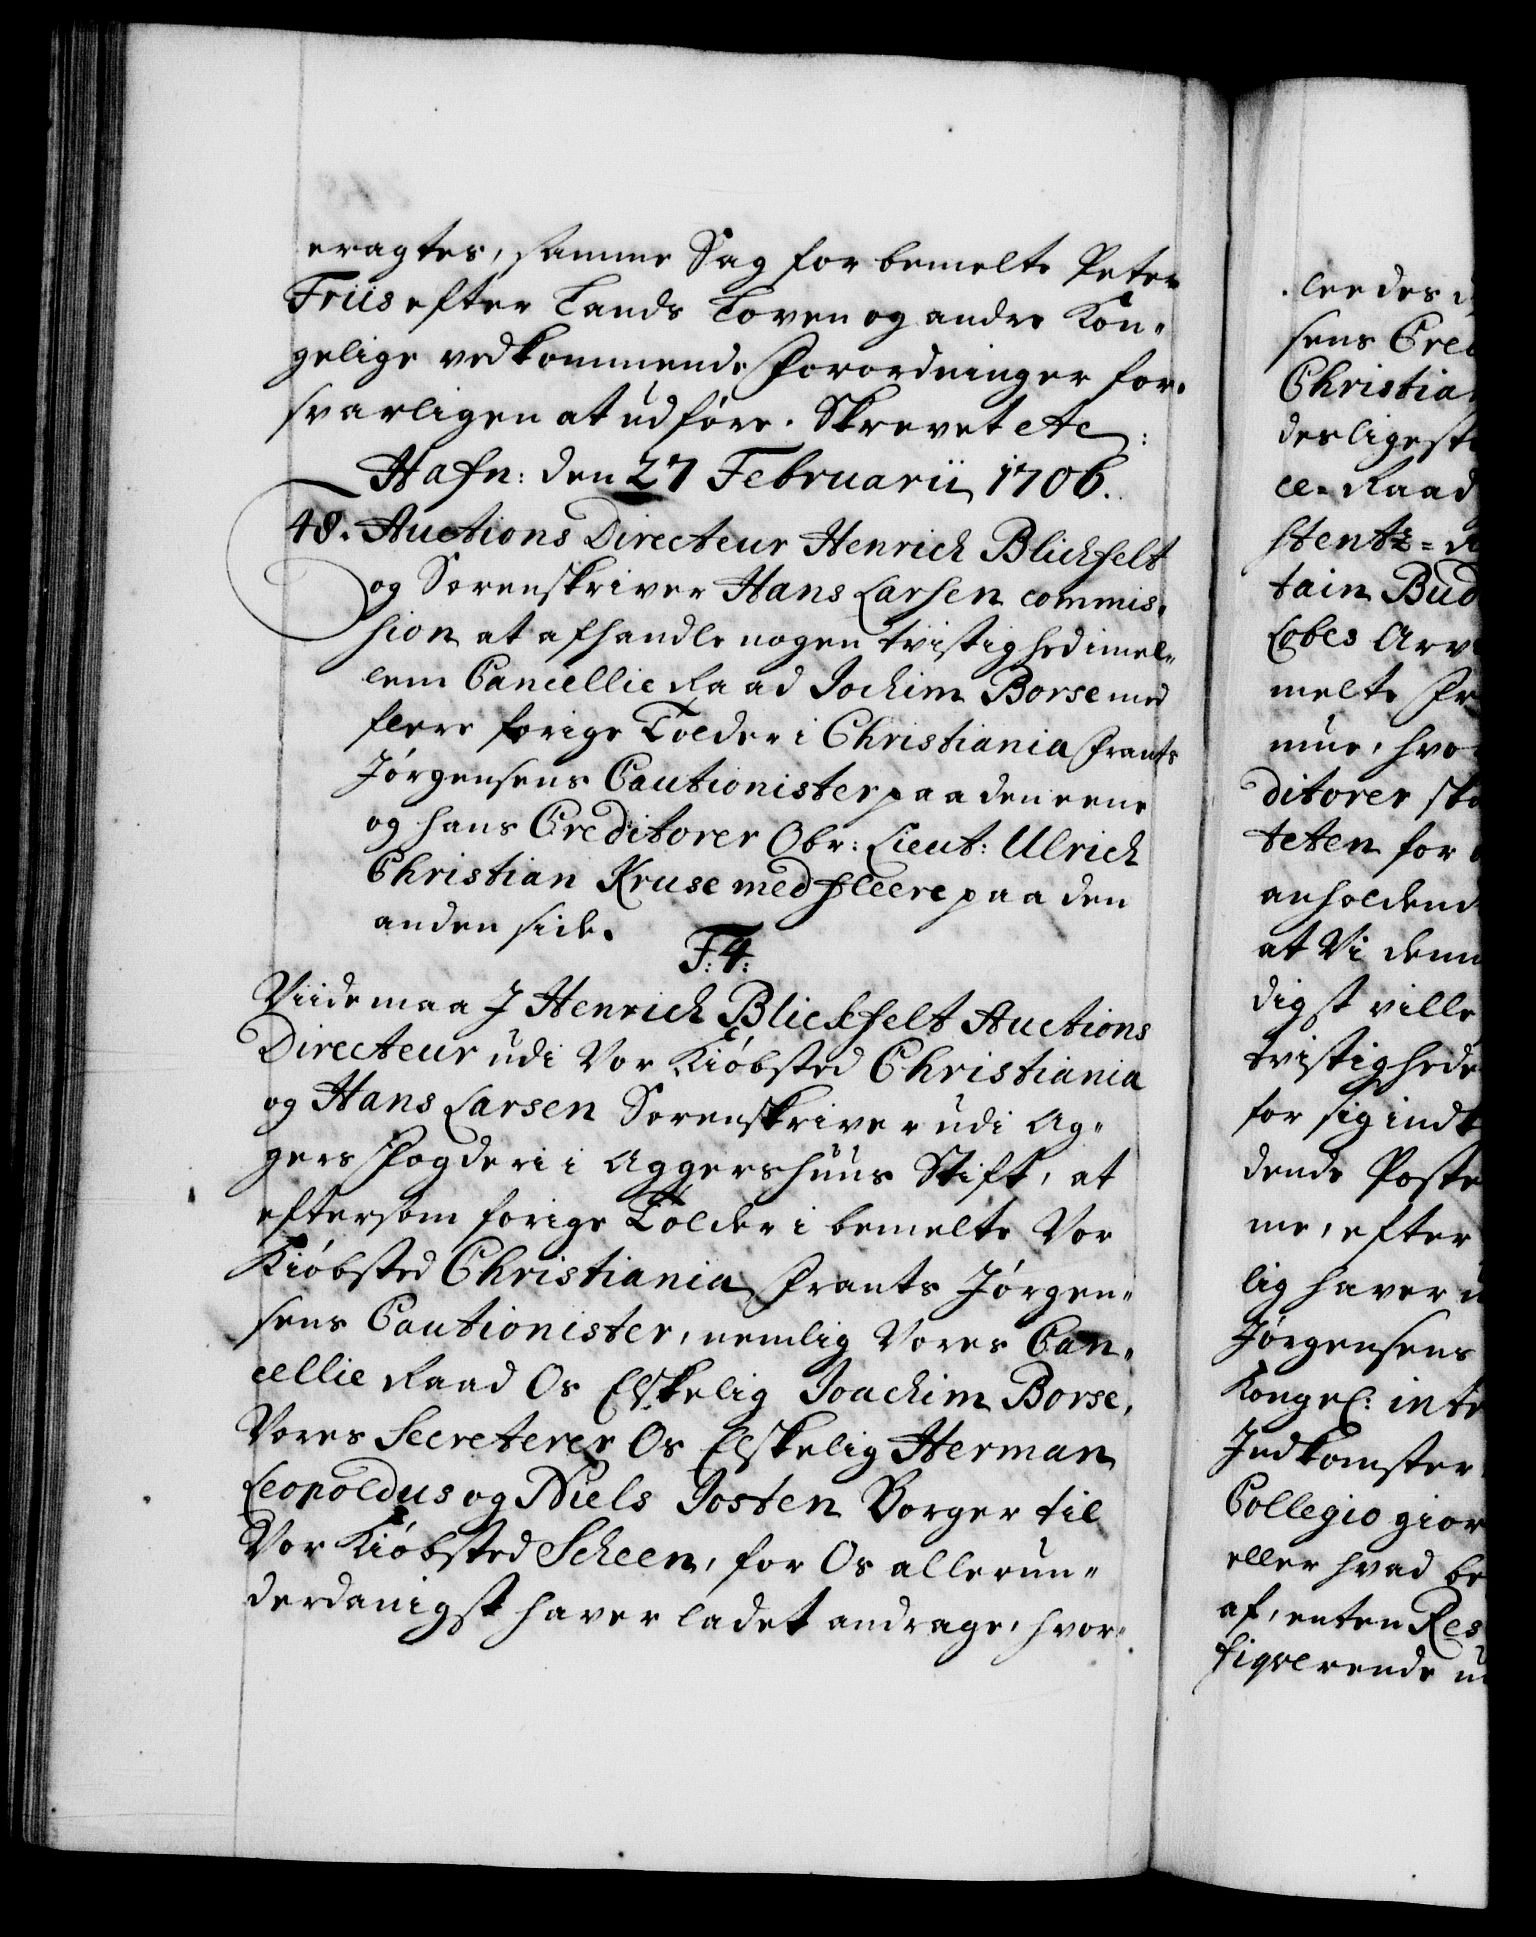 eragtes, samme Sag for bemelte Peter
Friis efter Lands Loven og andre Kon-
gelige vedkommende Forordninger for-
svarligen at udføre. Skrevet etc:
Hafn: den 27 Februarii 1706.
48. Auctions Directeur Henrich Blichfelt
og Sorenskriver Hans Larsen commis-
sion at afhandle nogen tvistighed imel-
lem Cancellie Raad Jochim Borse med
flere forige Tolder i Christiania Frants
Jørgensens Cautionister paa den eene
og hans Creditorer Obr: Lieut: Ulrich
Christian Kruse med fleere paa den
anden side.
F: 4:
Viide maa I Henrich Blickfelt Auctions
Directeur udi Vor Kiøbsted Christiania
og Hans Larsen Sorenskriver udi Ag-
gers Fogderi i Aggershuus Stift, at
eftersom forige Tolder i bemelte Vor
Kiøbsted Christiania Frants Jørgen-
sens Cautionister, nemlig Vores Can-
cellie Raad Os Elskelig Joachim Borse,
Vores Secreterer Os Elskelig Herman
Leopoldus og Niels Josten Borger til
Vor Kiøbsted Scheen, for Os allerun-
derdanigst haver ladet andrage, hvor-
leedes
sens
desligeste
ce-Raad
tain
melte
ditorer
teten for
at Vi
digst ville
tvistighede
for sig
dende Poste
me, efter
lig haver
Jørgensens
Kongel:
Indkomster
Collegio gior
eller hvad
af, enten